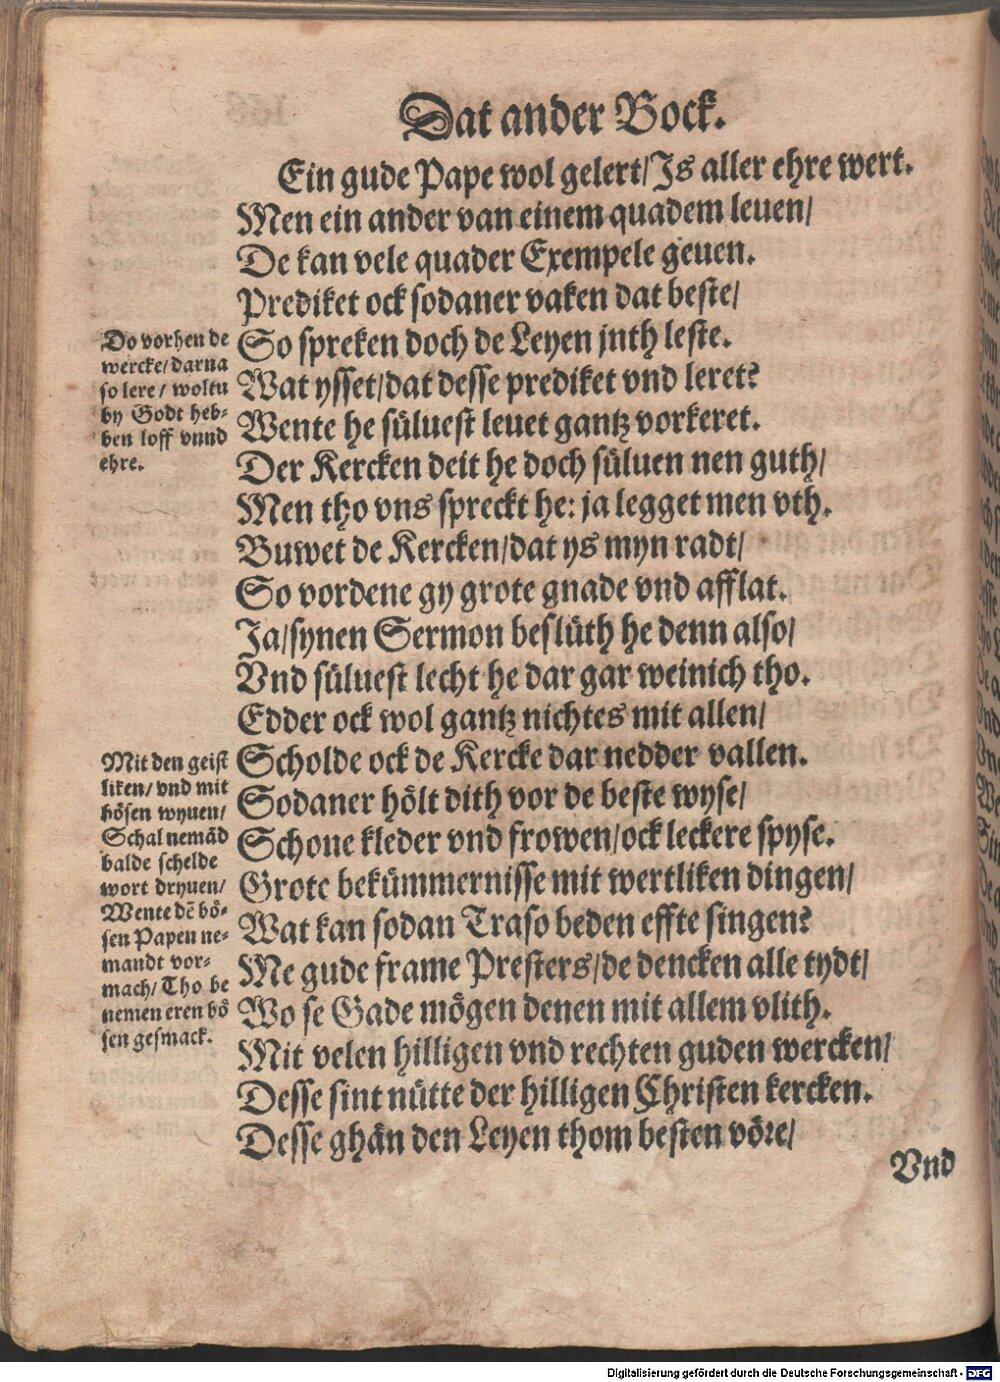 Dat ander Bock.
Ein gude Pape wol gelert/Is aller ehre wert.
Men ein ander van einem quadem leuen/
De kan vele quader Exempele geuen.
Prediket ock sodaner vaken dat beste/
So spreken doch de Leyen jnth leste.
Wat ysset/dat desse prediket vnd leret?
Wente he süluest leuet gantz vorkeret.
Der Kercken deit he doch süluen nen guth/
Men tho vns spreckt he: ja legget men vth.
Buwet de Kercken/dat ys myn radt/
So vordene gy grote gnade vnd afflat.
Ja/synen Sermon beslüth he denn also/
Vnd süluest lecht he dar gar weinich tho.
Edder ock wol gantz nichtes mit allen/
Scholde ock de Kercke dar nedder vallen.
Sodaner hölt dith vor de beste wyse/
Schone kleder vnd frowen/ock leckere spyse.
Grote bekümmernisse mit wertliken dingen/
Wat kan sodan Traso beden effte singen?
Me gude frame Presters/de dencken alle tydt/
Wo se Gade mögen denen mit allem vlith.
Mit velen hilligen vnd rechten guden wercken/
Desse sint nütte der hilligen Christen kercken.
Desse ghän den Leyen thom besten vöre/
Vnd
Do vorhen de
wercke/darna
so lere/ woltu
by Godt heb-
ben loff vnnd
ehre.
Mit den geist
liken/ vnd mit
bösen wyuen/
Schal nemād
balde schelde
wort dryuen/
Wente dē bö-
sen Papen ne-
mandt vor-
mach/ Tho be
nemen eren bö
sen gesmack.
Digitalisierung gefördert durch die Deutsche Forschungsgemeinschaft - DFG